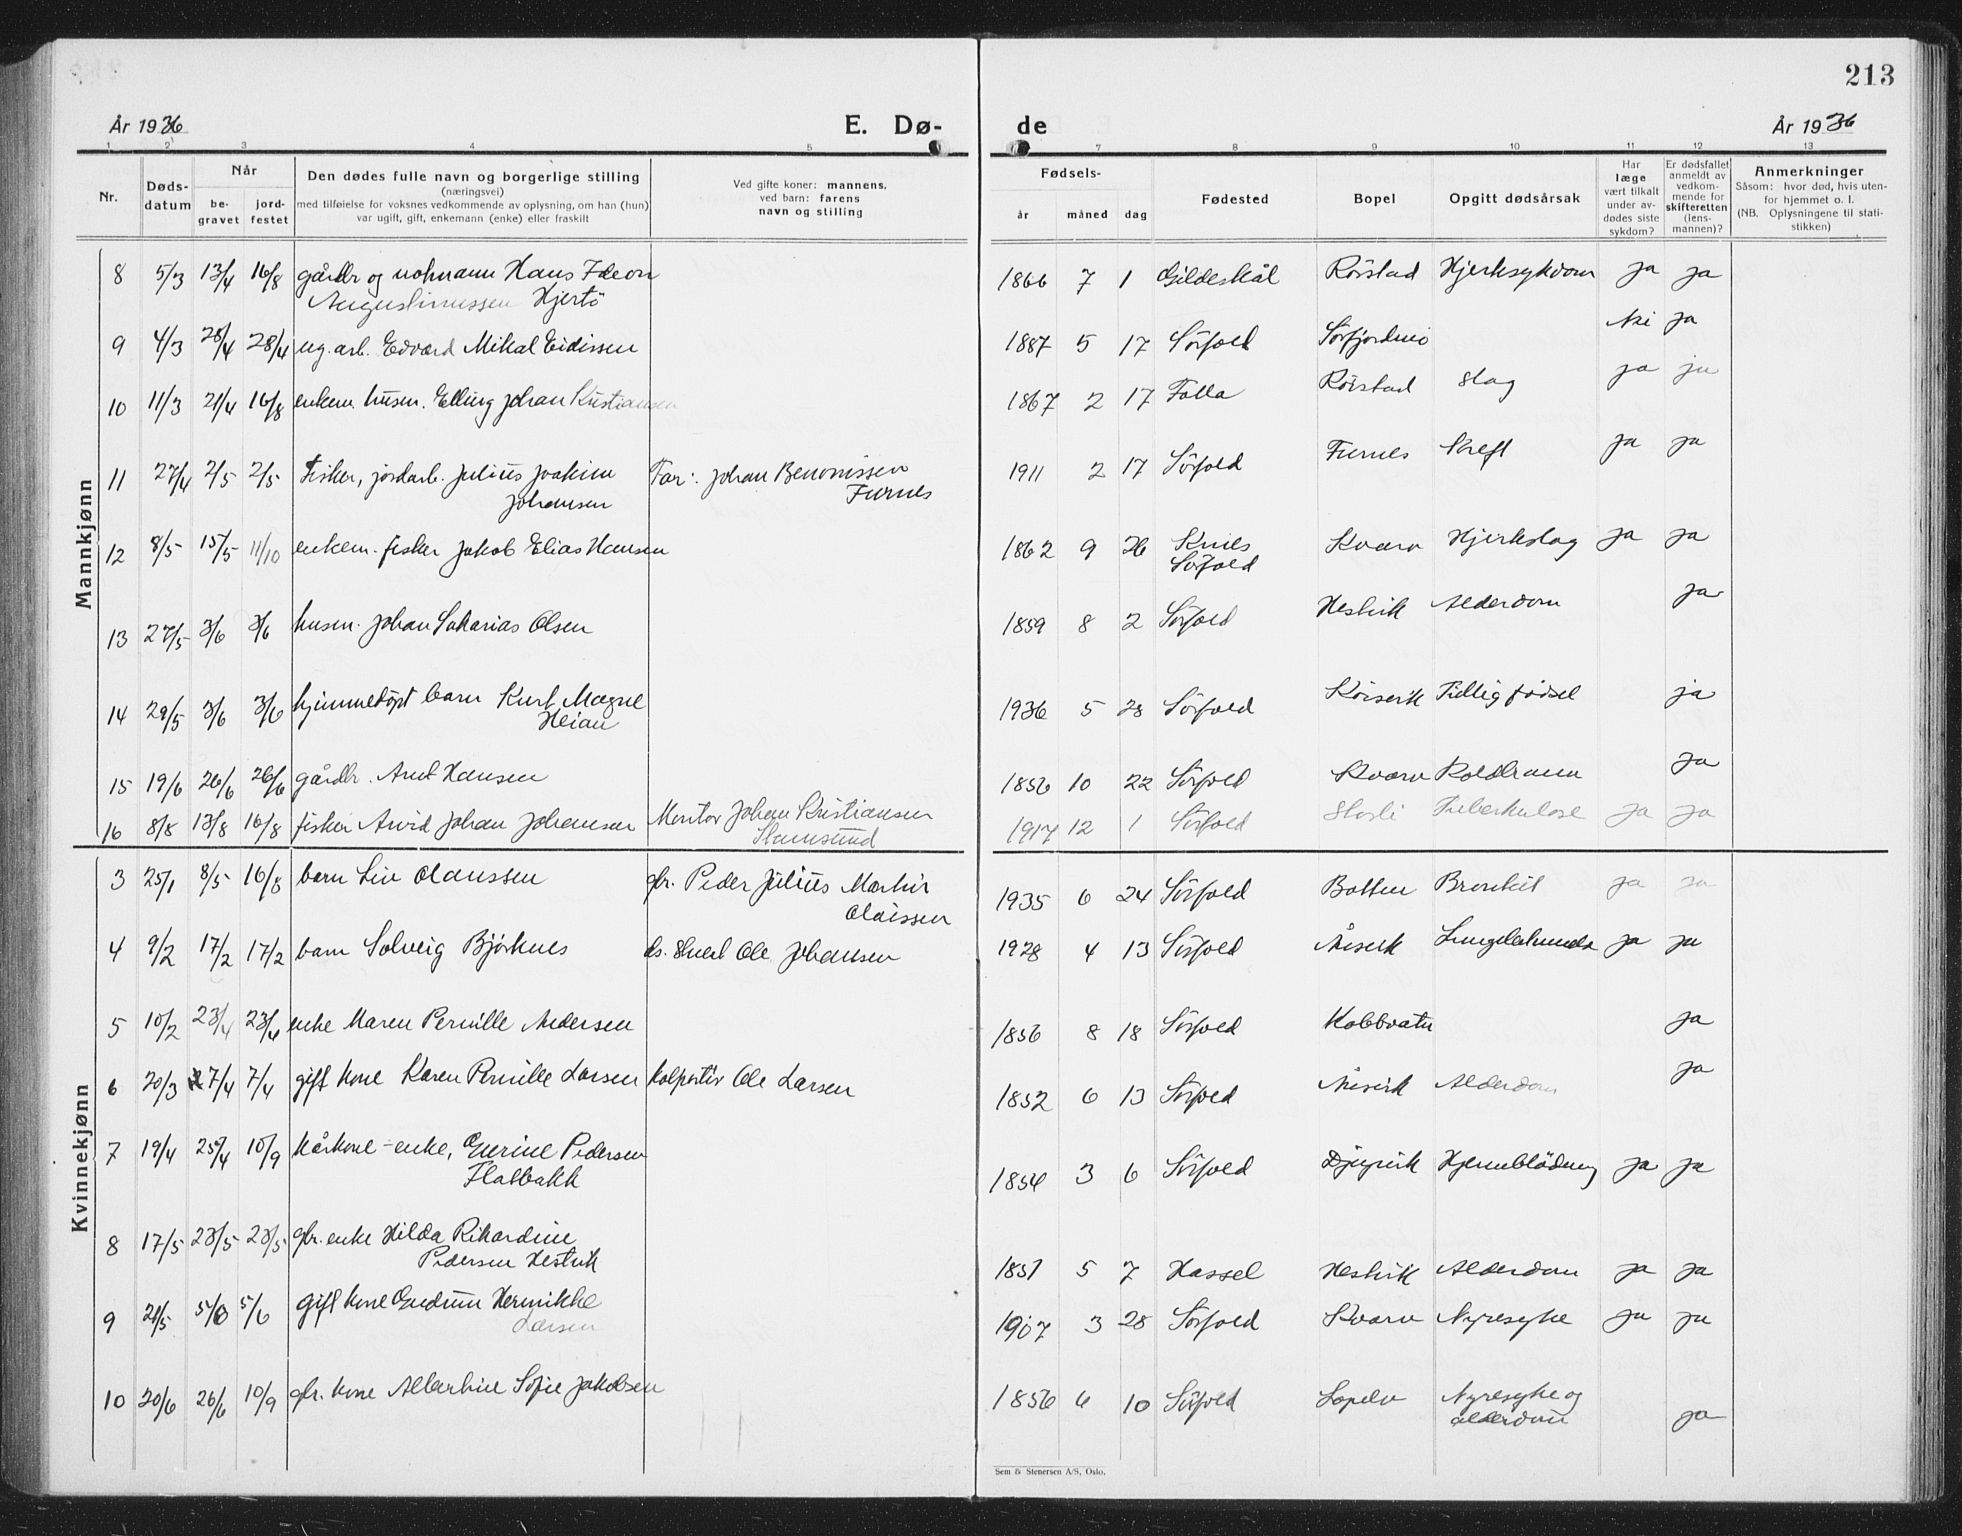 213
År 1936
E. Dø-
de
År 1936
1 2 3 4 5 7 8 9 10 11 12 13
Nr.
Døds-
datum
Når
be-
gravet
jord-
festet
Den dødes fulle navn og borgerlige stilling
(næringsvei)
med tilføielse for voksnes vedkommende av oplysning, om han (hun)
var ugift, gift, enkemann (enke) eller fraskilt
Ved gifte koner: mannens,
ved barn: farens
navn og stilling
Fødsels-
år måned dag
Fødested
Bopel
Opgitt dødsårsak
Har
læge
vært tilkalt
under av-
dødes siste
sykdom?
Er dødsfallet
anmeldt av
vedkom-
mende for
skifteretten
(lens-
mannen)?
Anmerkninger
Såsom: hvor død, hvis uten-
for hjemmet o. l.
(NB. Oplysningene til stati-
stikken)
Mannkjønn
8 5/3 13/4 16/8 gårdbr og notmann Hans Edeon 1866 7 1 Gildeskål Rörstad Hjertesykdom ja ja
Augustinussen Hjertö
9 4/3 28/4 28/4 ug. arb. Edvard Mikal Eidissen 1887 5 17 Sörfold Sörfjordmo Nei ja
10 11/3 21/4 16/8 enkem. husm. Elling Johan Kristiansen 1867 2 17 Folla Rörstad Slag ja ja
11 27/4 2/5 2/5 Fisker, jordarb. Julius Joakim Far: Johan Benonissen 1911 2 17 Sörfold Furnes Kreft ja ja
Johansen Furnes
12 8/5 15/5 11/10 enkem. fisker Jakob Elias Hansen 1862 9 26 Knes Kvarv Hjerteslag ja ja
Sörfold
13 27/5 3/6 3/6 husm. Johan Sakarias Olsen 1859 8 2 Sörfold Hestvik Alderdom ja
14 29/5 3/6 3/6 hjemmedöpt barn Kurt Magne 1936 5 28 Sörfold Tidlig födsel ja
Heian
15 19/6 26/6 26/6 gårdbr. Arnt Hansen 1856 10 22 Sörfold Kvarv Koldbrann ja
16 8/8 13/8 16/8 fisker Arvid Johan Johansen Montør Johan Kristiansen 1917 12 1 Sörfold Storli Tuberkulose ja ja
Stamsund
Kvinnekjønn
3 25/1 8/5 16/8 barn Liv Olaussen gbr. Peder Julius Martin 1935 6 24 Sörfold Botten Bronkit ja ja
Olaissen
4 9/2 17/2 17/2 barn Solveig Bjørknes Ole Johansen 1928 4 13 Sörfold Åsvik ja ja
5 10/2 23/4 23/4 enke Maren Pernille Andersen 1856 8 18 Sörfold Kobbvatn ja
6 20/3 7/4 7/4 gift kone Karen Pernille Larsen kolportör Ole Larsen 1852 6 13 Sörfold Åsvik Alderdom ja
7 19/4 25/4 10/9 kårkone - enke, Gurine Pedersen 1854 3 6 Sörfold Djupvik Hjerneblödning ja ja
Flatbakk
8 17/5 23/5 23/5 gbr. enke Hilda Rikardine 1851 5 7 Hassel Hestvik Alderdom ja ja
Pedersen Hestvik
9 21/5 5/6 5/6 gift kone Gudrun Henrikke 1907 3 28 Sörfold Kvarv Nyresyke ja ja
Larsen
10 20/6 26/6 10/9 gbr. kone Albertine Sofie Jakobsen 1856 6 10 Sörfold Nyresyke og
alderdom ja
Sem & Stenersen A/S, Oslo.